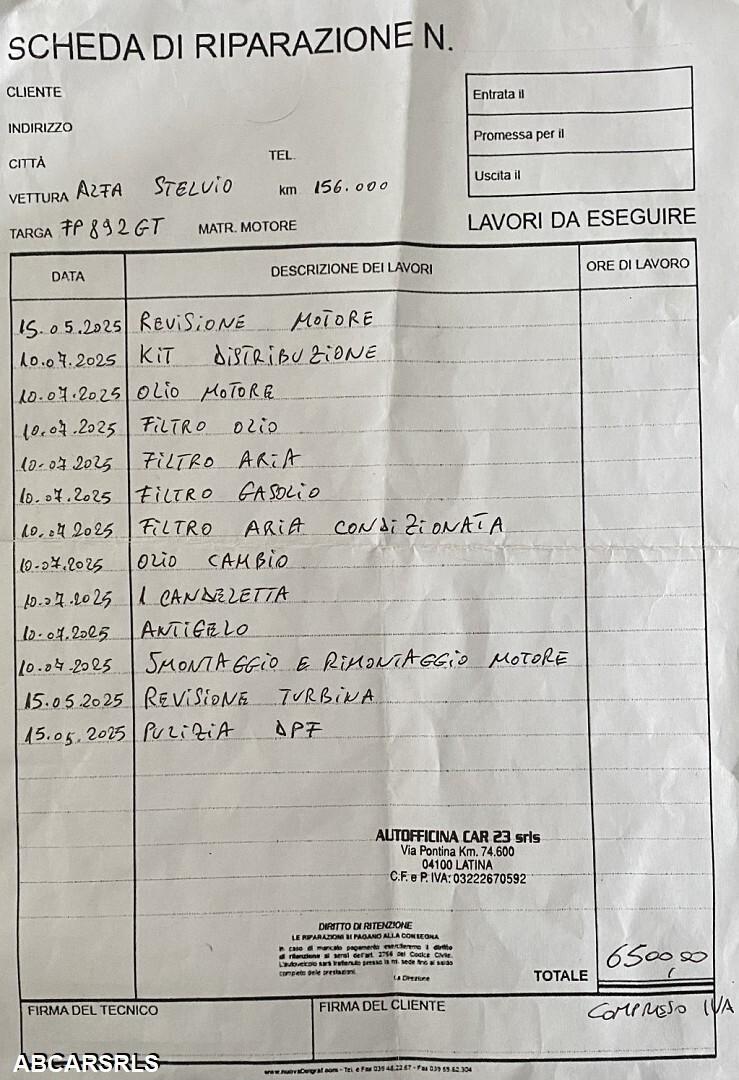 SCHEDA DI RIPARAZIONE N.
CLIENTE
INDIRIZZO
CITTÀ
TEL.
VETTURA ALFA STELVIO km 156.000
TARGA FP892GT MATR. MOTORE
Entrata il
Promessa per il
Uscita il
LAVORI DA ESEGUIRE
DATA DESCRIZIONE DEI LAVORI ORE DI LAVORO
15.05.2025 REVISIONE MOTORE
10.07.2025 KIT DISTRIBUZIONE
10.07.2025 OLIO MOTORE
10.07.2025 FILTRO OLIO
10.07.2025 FILTRO ARIA
10.07.2025 FILTRO GASOLIO
10.07.2025 FILTRO ARIA CONDIZIONATA
10.07.2025 OLIO CAMBIO
10.07.2025 1 CANDELETTA
10.07.2025 ANTIGELO
10.07.2025 SMONTAGGIO E RIMONTAGGIO MOTORE
15.05.2025 REVISIONE TURBINA
15.05.2025 PULIZIA DPF
AUTOFFICINA CAR 23 srls
Via Pontina Km. 74.600
04100 LATINA
C.F. e P. IVA: 03222670592
DIRITTO DI RITENZIONE
LE RIPARAZIONI SI PAGANO ALLA CONSEGNA
In caso di mancato pagamento eserciteremo il diritto
di ritenzione ai sensi dell'art. 2756 del Codice Civile.
L'autoveicolo sarà trattenuto presso la ns. sede fino al saldo
completo delle prestazioni.
La Direzione
TOTALE 6500,00
FIRMA DEL TECNICO FIRMA DEL CLIENTE
COMPRESO IVA
ABCARSRLS